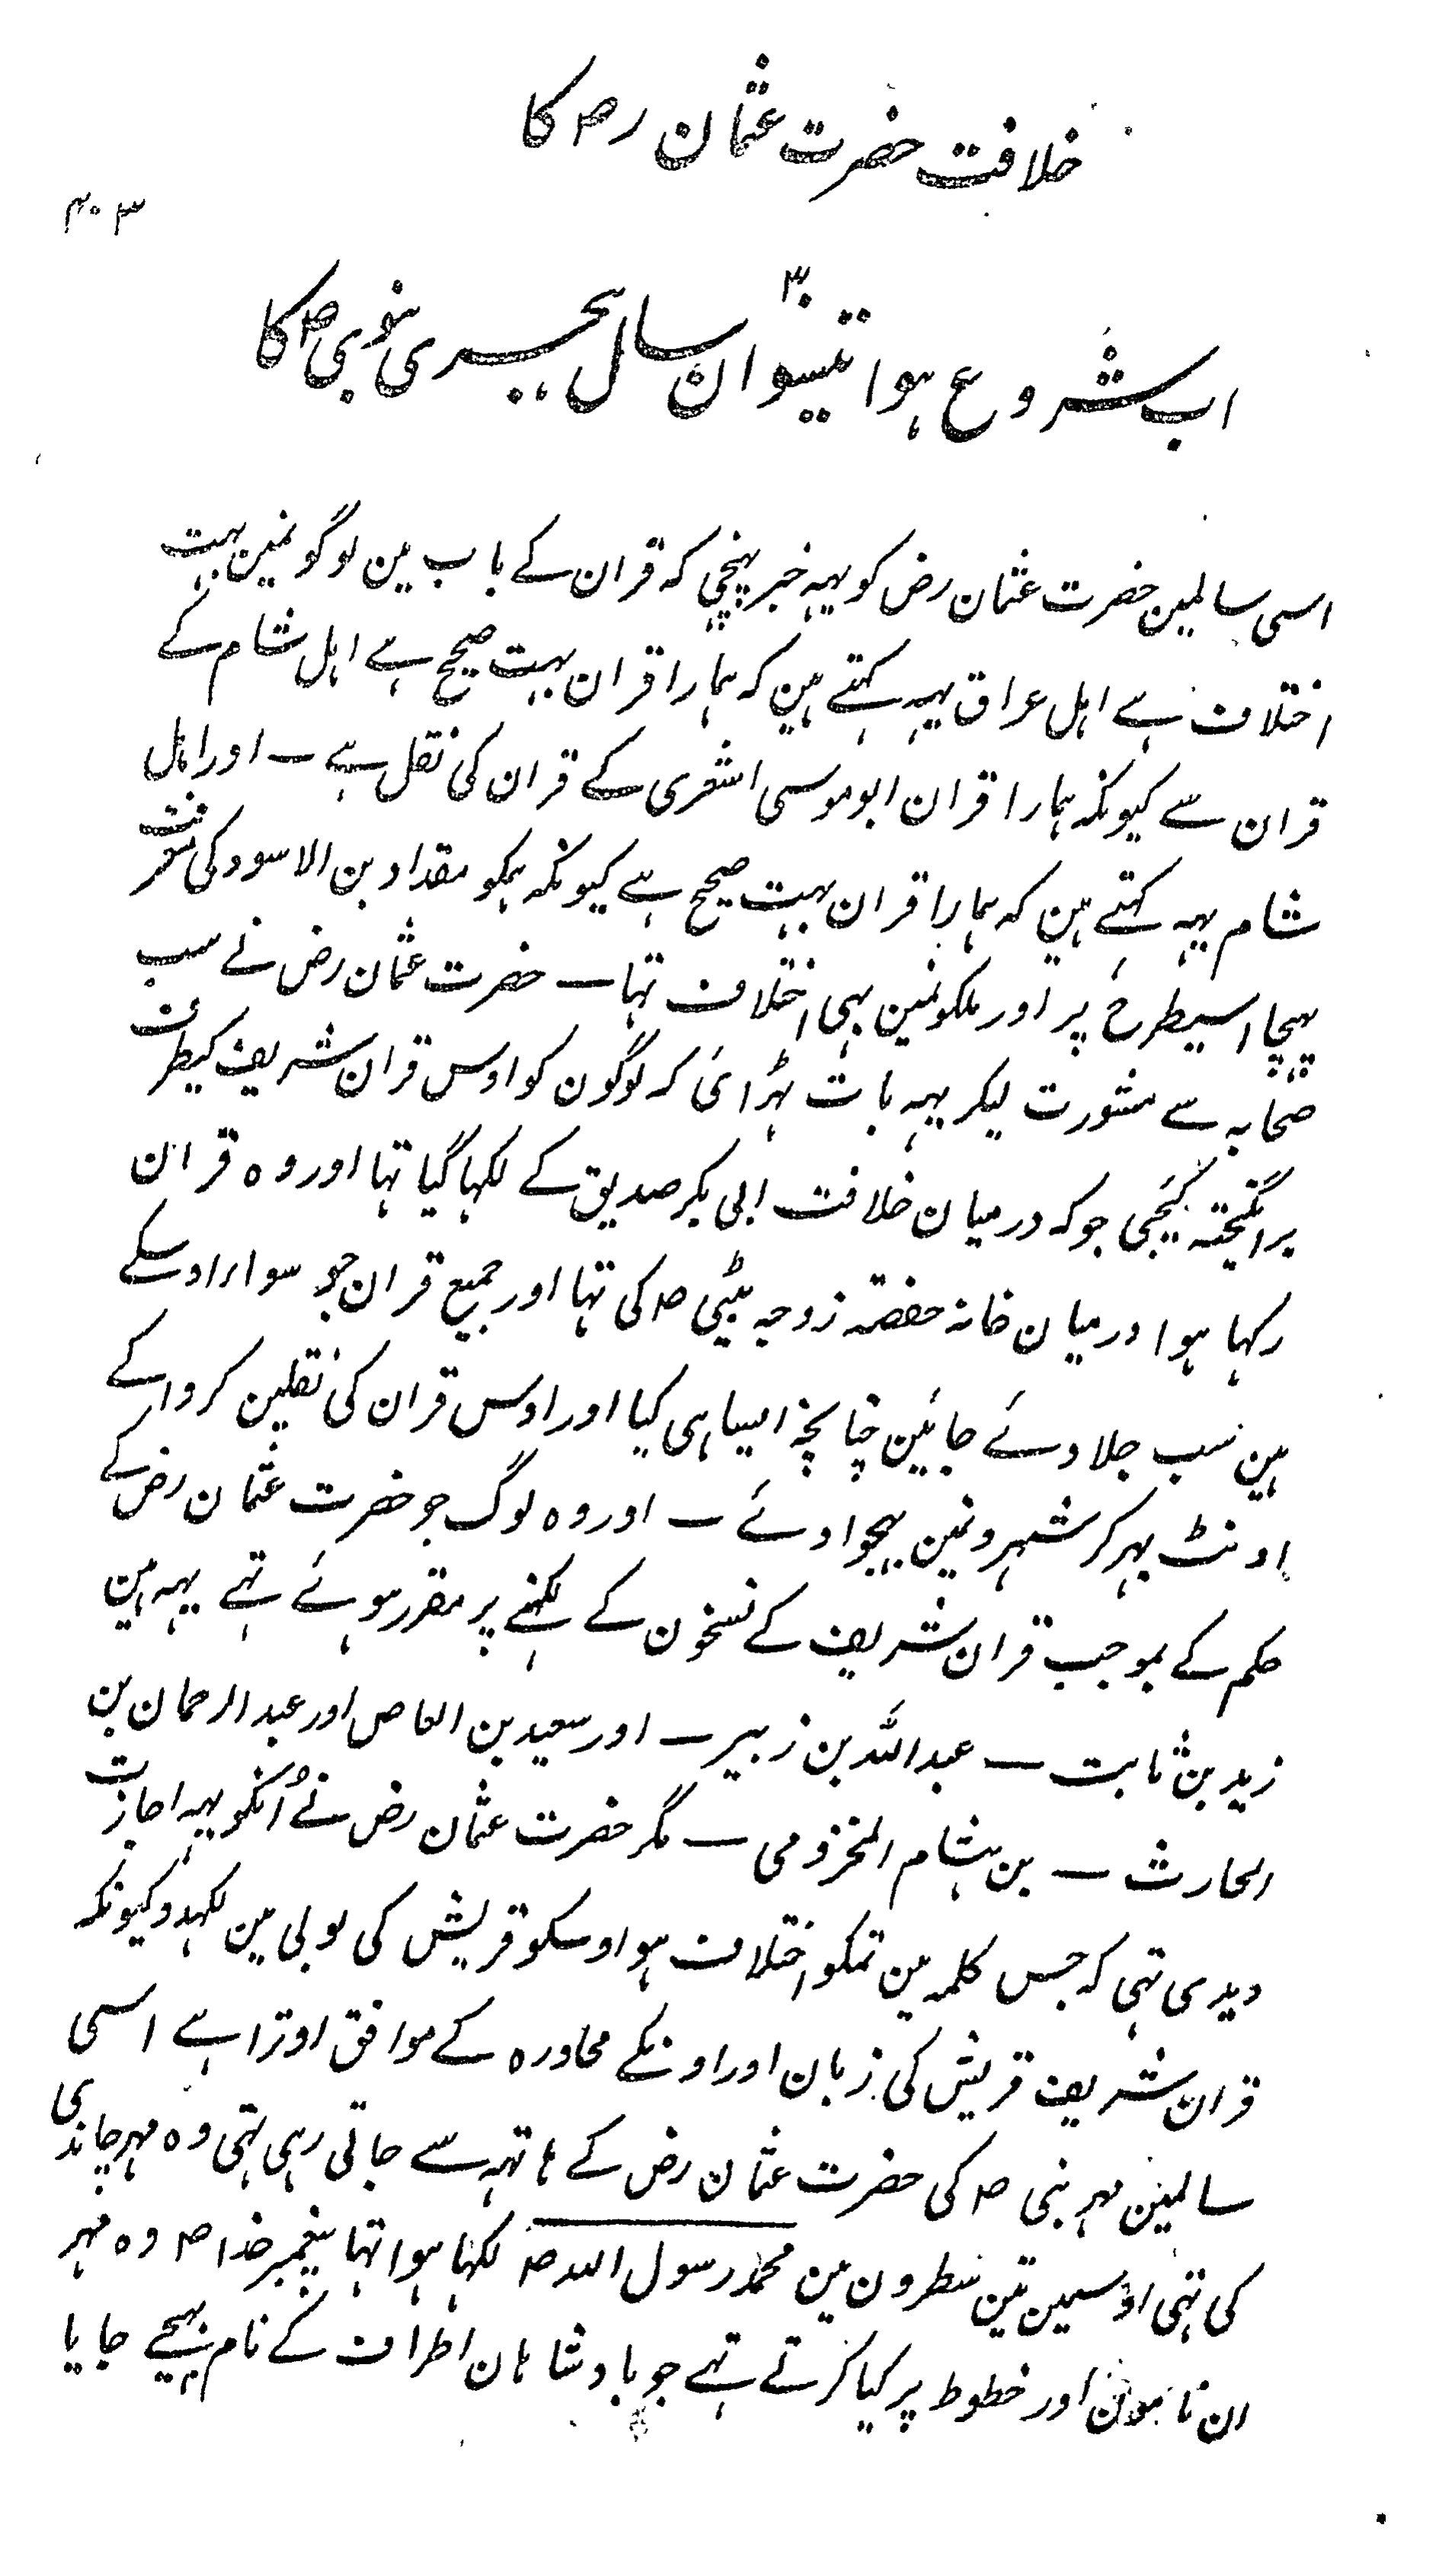 خلافت حضرت عثمان رض کا
۴۰۳
۳۰
اب شروع ہوا تیسوان سال ہجری نبوی ص کا
اسی سالمین حضرت عثمان رض کو یہہ خبر پہنچی کہ قران کے باب مین لوگونمین بہت
اختلاف ہے اہل عراق یہہ کہتے ہین کہ ہمارا قران بہت صحیح ہے اہل شام کے
قران سے کیونکہ ہمارا قران ابو موسی اشعری کے قران کی نقل ہے ـ اور اہل
شام یہہ کہتے ہین کہ ہمارا قران بہت صحیح ہے کیونکہ ہمکو مقداد بن الاسود کی معرفت
پہنچا اسیطرح پر اور ملکونمین بہی اختلاف تہا ـ حضرت عثمان رض نے سب
صحابہ سے مشورت لیکر یہہ بات ٹہرائی کہ لوگون کو اوس قران شریف کیطرف
برانگیختہ کیجئی جو کہ درمیان خلافت ابی بکر صدیق کے لکہا گیا تہا اور وہ قران
رکہا ہوا درمیان خانہ حفصہ زوجہ نبی ص کی تہا اور جمیع قران جو سواء اوسکے
ہین سب جلا دئے جائین چنانچہ ایسا ہی کیا اور اوس قران کی نقلین کروا کے
اونٹ بہر کر شہرونمین بہجوا دئے ـ اور وہ لوگ جو حضرت عثمان رض کے
حکم کے بموجب قران شریف کے نسخون کے لکہنے پر مقرر ہوئے تہے یہہ ہین
زید بن ثابت ـ عبد اللہ بن زبیر ـ اور سعید بن العاص اور عبد الرحمان بن
الحارث ـ بن ہشام المخزومی ـ مگر حضرت عثمان رض نے اُنکو یہہ اجازت
دیدی تہی کہ جس کلمہ مین تمکو اختلاف ہو اوسکو قریش کی بولی مین لکہدو کیونکہ
قران شریف قریش کی زبان اور اونکے محاورہ کے موافق اوترا ہے اسی
سالمین مہر نبی ص کی حضرت عثمان رض کے ہاتہہ سے جاتی رہی تہی وہ مہر چاندی
کی تہی اوسمین تین سطرون مین محمد رسول اللہ ص لکہا ہوا تہا پیغمبر خدا ص وہ مہر
ان نامون اور خطوط پر کیا کرتے تہے جو بادشاہان اطراف کے نام بہیجے جایا